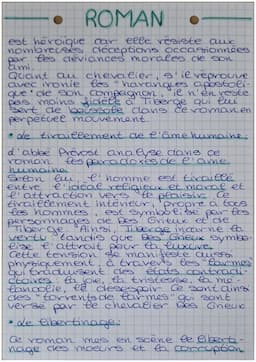 ROMAN
est héroïque car elle résiste aux
nombreuses déceptions occasionnées
par les déviances morales de son
ami.
Quant au chevalier, s'il réprouve
avec ironie les "harangues apostoli-
que" de son compagnon, il n'en reste
pas moins fidèle à Tiberge qui lui
sert de boussole dans ce roman en
perpétuel mouvement.
• Le tiraillement de l'âme humaine.
L'abbé Prévost analyse dans ce
roman les paradoxes de l'âme
humaine.
Selon lui, l'homme est tiraillé
entre l'idéal religieux et moral et
l'attraction vers le plaisir. Ce
tiraillement intérieur, propre à tous
les hommes, est symbolisé par les
personnages de Des Grieux et de
Tiberge. Ainsi, Tiberge incarne la
vertu tandis que Des Grieux symbo-
lise l'attrait pour la luxure.
Cette tension se manifeste aussi
physiquement, à travers les larmes
qui traduisent des états contradi-
ctoires : la joie, la tristesse, la mé-
lancolie, le désespoir. Ce sont ainsi
des "torrents de larmes" qui sont
versé par le chevalier Des Grieux
• Le libertinage :
Ce roman met en scène le liberti-
nage des moeurs et la corruption